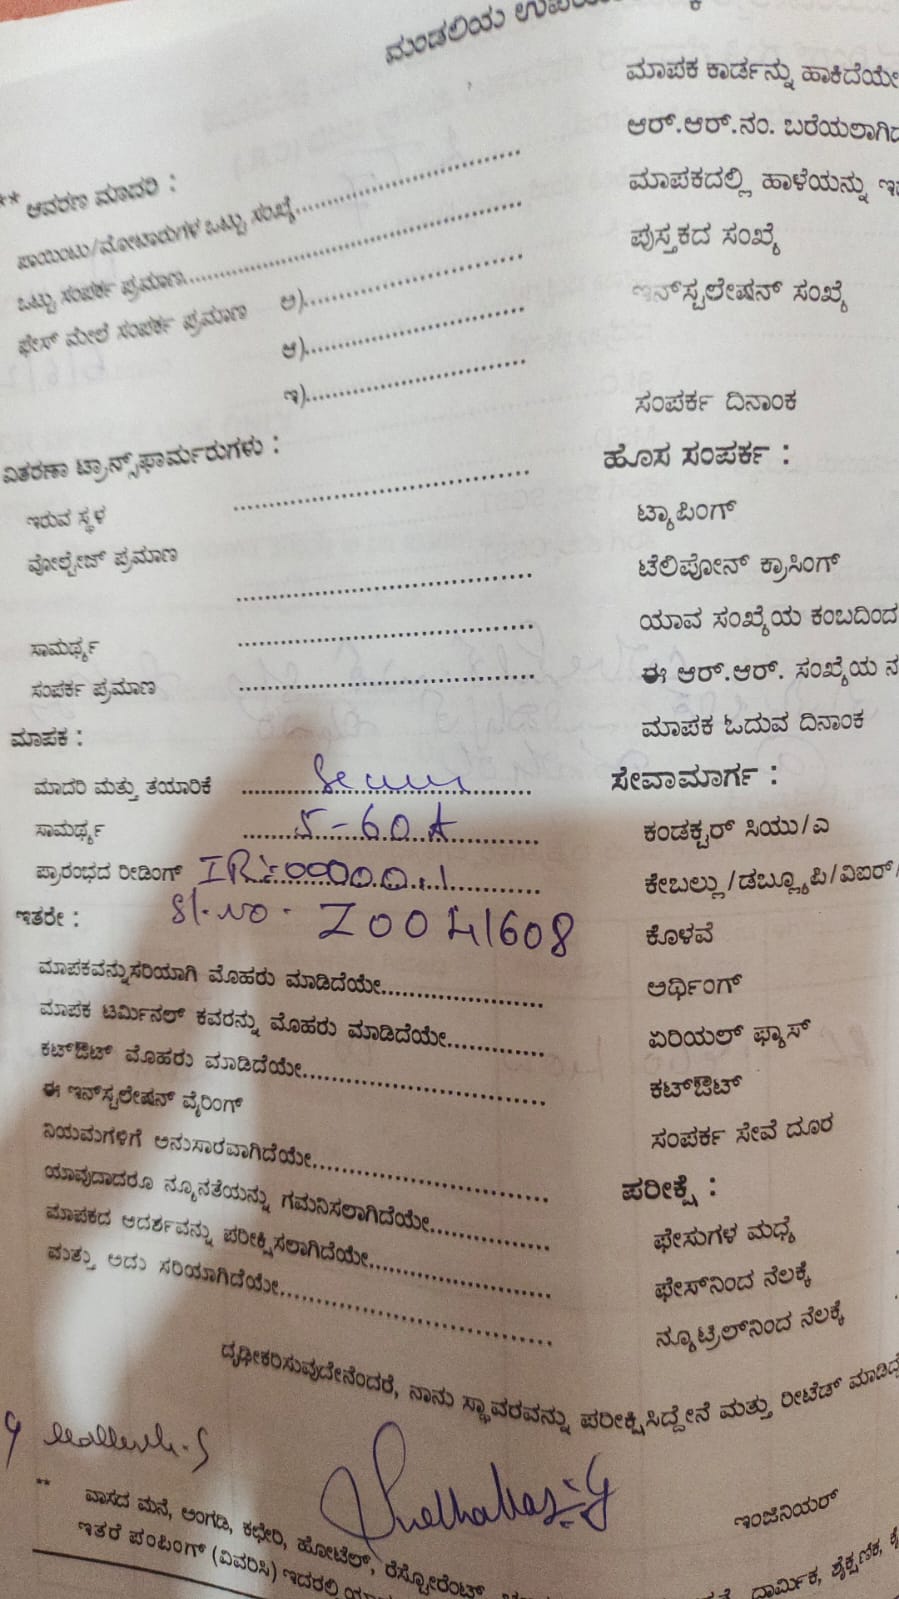 ಮಂಡಲಿಯ
** ಆವರಣ ಮಾದರಿ :
ಪಾಯಿಂಟು/ಮೋಟಾರುಗಳ ಒಟ್ಟು ಸಂಖ್ಯೆ
ಒಟ್ಟು ಸಂಪರ್ಕ ಪ್ರಮಾಣ
ಫೇಸ್ ಮೇಲೆ ಸಂಪರ್ಕ ಪ್ರಮಾಣ ಅ)
ಆ)
ಇ)
ವಿತರಣಾ ಟ್ರಾನ್ಸ್‌ಫಾರ್ಮರುಗಳು :
ಇರುವ ಸ್ಥಳ
ವೋಲ್ಟೇಜ್ ಪ್ರಮಾಣ
ಸಾಮರ್ಥ್ಯ
ಸಂಪರ್ಕ ಪ್ರಮಾಣ
ಮಾಪಕ :
ಮಾದರಿ ಮತ್ತು ತಯಾರಿಕೆ
ಸಾಮರ್ಥ್ಯ 5-60A
ಪ್ರಾರಂಭದ ರೀಡಿಂಗ್ IR:- 00000.1
ಇತರೇ : Sl.No. Z0041608
ಮಾಪಕವನ್ನು ಸರಿಯಾಗಿ ಮೊಹರು ಮಾಡಿದೆಯೇ
ಮಾಪಕ ಟರ್ಮಿನಲ್ ಕವರನ್ನು ಮೊಹರು ಮಾಡಿದೆಯೇ
ಕಟ್‌ಔಟ್ ಮೊಹರು ಮಾಡಿದೆಯೇ
ಈ ಇನ್‌ಸ್ಟಲೇಷನ್ ವೈರಿಂಗ್
ನಿಯಮಗಳಿಗೆ ಅನುಸಾರವಾಗಿದೆಯೇ
ಯಾವುದಾದರೂ ನ್ಯೂನತೆಯನ್ನು ಗಮನಿಸಲಾಗಿದೆಯೇ
ಮಾಪಕದ ಆದರ್ಶವನ್ನು ಪರೀಕ್ಷಿಸಲಾಗಿದೆಯೇ
ಮತ್ತು ಅದು ಸರಿಯಾಗಿದೆಯೇ
ಮಾಪಕ ಕಾರ್ಡನ್ನು ಹಾಕಿದೆಯೇ
ಆರ್.ಆರ್.ನಂ. ಬರೆಯಲಾಗಿದ
ಮಾಪಕದಲ್ಲಿ ಹಾಳೆಯನ್ನು
ಪುಸ್ತಕದ ಸಂಖ್ಯೆ
ಇನ್‌ಸ್ಟಲೇಷನ್ ಸಂಖ್ಯೆ
ಸಂಪರ್ಕ ದಿನಾಂಕ
ಹೊಸ ಸಂಪರ್ಕ :
ಟ್ಯಾಪಿಂಗ್
ಟೆಲಿಪೋನ್ ಕ್ರಾಸಿಂಗ್
ಯಾವ ಸಂಖ್ಯೆಯ ಕಂಬದಿಂದ
ಈ ಆರ್.ಆರ್. ಸಂಖ್ಯೆಯ
ಮಾಪಕ ಓದುವ ದಿನಾಂಕ
ಸೇವಾಮಾರ್ಗ :
ಕಂಡಕ್ಟರ್ ಸಿಯು/ಎ
ಕೇಬಲ್ಲು/ಡಬ್ಲ್ಯೂಪಿ/ವಿಐರ್/
ಕೊಳವೆ
ಅರ್ಥಿಂಗ್
ಏರಿಯಲ್ ಫ್ಯೂಸ್
ಕಟ್‌ಔಟ್
ಸಂಪರ್ಕ ಸೇವೆ ದೂರ
ಪರೀಕ್ಷೆ :
ಫೇಸುಗಳ ಮಧ್ಯೆ
ಫೇಸ್‌ನಿಂದ ನೆಲಕ್ಕೆ
ನ್ಯೂಟ್ರಲ್‌ನಿಂದ ನೆಲಕ್ಕೆ
ದೃಢೀಕರಿಸುವುದೇನೆಂದರೆ, ನಾನು ಸ್ಥಾವರವನ್ನು ಪರೀಕ್ಷಿಸಿದ್ದೇನೆ ಮತ್ತು ರೀಟೆಡ್
ಇಂಜಿನಿಯರ್
** ವಾಸದ ಮನೆ, ಅಂಗಡಿ, ಕಛೇರಿ, ಹೋಟೆಲ್, ರೆಸ್ಟೋರೆಂಟ್ ಧಾರ್ಮಿಕ, ಶೈಕ್ಷಣಿಕ,
ಇತರೆ ಪಂಪಿಂಗ್ (ವಿವರಿಸಿ) ಇದರಲ್ಲಿ